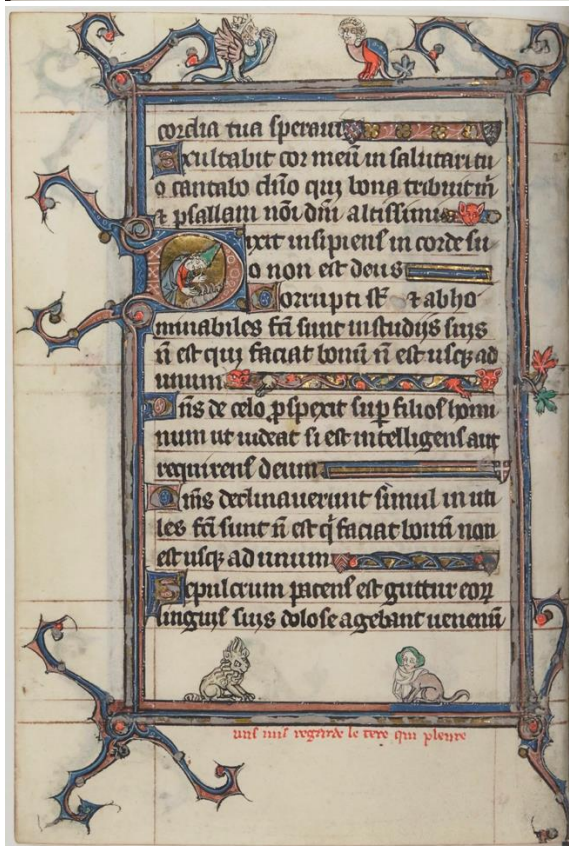 cordia tua sperauit
Exultabit cor meū in salutari tu
o cantabo dn̄o qui bona tribuit m̄
⁊ psallam nōi dn̄i altissimi
Dixit insipiens in corde su
o non est deus
Corrupti st̄ ⁊ abho
minabiles fc̄i sunt in studiis suis
n̄ est qui faciat bonū n̄ est usqȝ ad
unum
Dn̄s de celo ꝓspexit suꝑ filios homi
num ut uideat si est intelligens aut
requirens deum
Om̄s declinauerunt simul in uti
les fc̄i sunt n̄ est q̇ faciat bonū non
est usqȝ ad unum
Sepulcrum patens est guttur eoꝝ
linguis suis dolose agebant uenenū
regarde le qui pleure